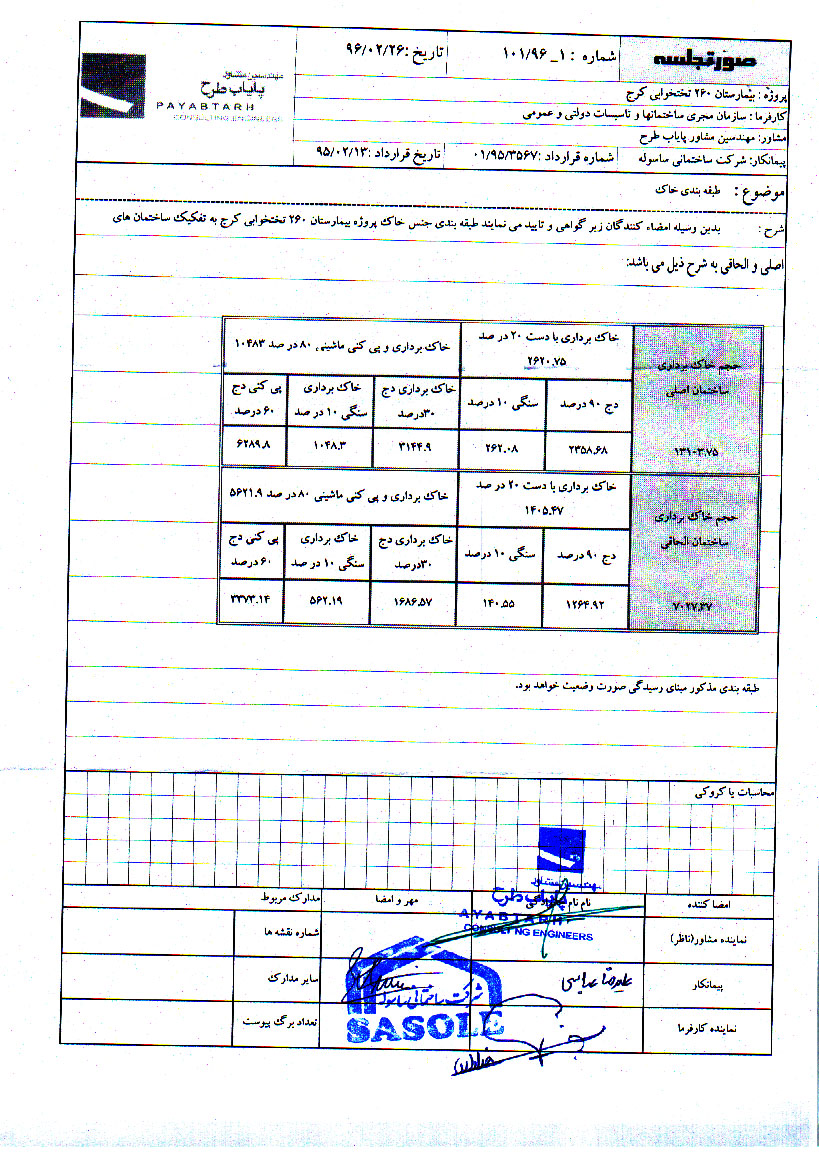 صورتجلسه
شماره : ۱_ ۱۰۱/۹۶
تاریخ :۹۶/۰۲/۲۶
مهندسین مشاور
پایاب طرح
PAYABTARH
CONSULTING ENGINEERS
پروژه : بیمارستان ۲۶۰ تختخوابی کرج
کارفرما : سازمان مجری ساختمانها و تاسیسات دولتی و عمومی
مشاور: مهندسین مشاور پایاب طرح
پیمانکار: شرکت ساختمانی ساسوله
شماره قرارداد :۰۱/۹۵/۳۵۶۷
تاریخ قرارداد :۹۵/۰۲/۱۳
موضوع : طبقه بندی خاک
شرح : بدین وسیله امضاء کنندگان زیر گواهی و تایید می نمایند طبقه بندی جنس خاک پروژه بیمارستان ۲۶۰ تختخوابی کرج به تفکیک ساختمان های
اصلی و الحاقی به شرح ذیل می باشد:
حجم خاک برداری
ساختمان اصلی
۱۳۱۰۳.۷۵
خاک برداری با دست ۲۰ در صد
۲۶۲۰.۷۵
خاک برداری و پی کنی ماشینی ۸۰ در صد ۱۰۴۸۳
دج ۹۰ درصد
سنگی ۱۰ درصد
خاک برداری دج
۳۰درصد
خاک برداری
سنگی ۱۰ در صد
پی کنی دج
۶۰ درصد
۲۳۵۸.۶۸
۲۶۲.۰۸
۳۱۴۴.۹
۱۰۴۸.۳
۶۲۸۹.۸
حجم خاک برداری
ساختمان الحاقی
۷۰۲۷.۳۷
خاک برداری با دست ۲۰ در صد
۱۴۰۵.۴۷
خاک برداری و پی کنی ماشینی ۸۰ در صد ۵۶۲۱.۹
دج ۹۰ درصد
سنگی ۱۰ درصد
خاک برداری دج
۳۰درصد
خاک برداری
سنگی ۱۰ در صد
پی کنی دج
۶۰ درصد
۱۲۶۴.۹۲
۱۴۰.۵۵
۱۶۸۶.۵۷
۵۶۲.۱۹
۳۳۷۳.۱۴
طبقه بندی مذکور مبنای رسیدگی صورت وضعیت خواهد بود.
محاسبات یا کروکی
مهندسین مشاور
پایاب طرح
AYABTARH
CONSULTING ENGINEERS
امضا کننده
نام نام
مهر و امضا
مدارک مربوط
نماینده مشاور(ناظر)
شماره نقشه ها
پیمانکار
علیرضا عباسی
سایر مدارک
شرکت ساختمانی ساسوله
SASOLE
نماینده کارفرما
تعداد برگ پیوست